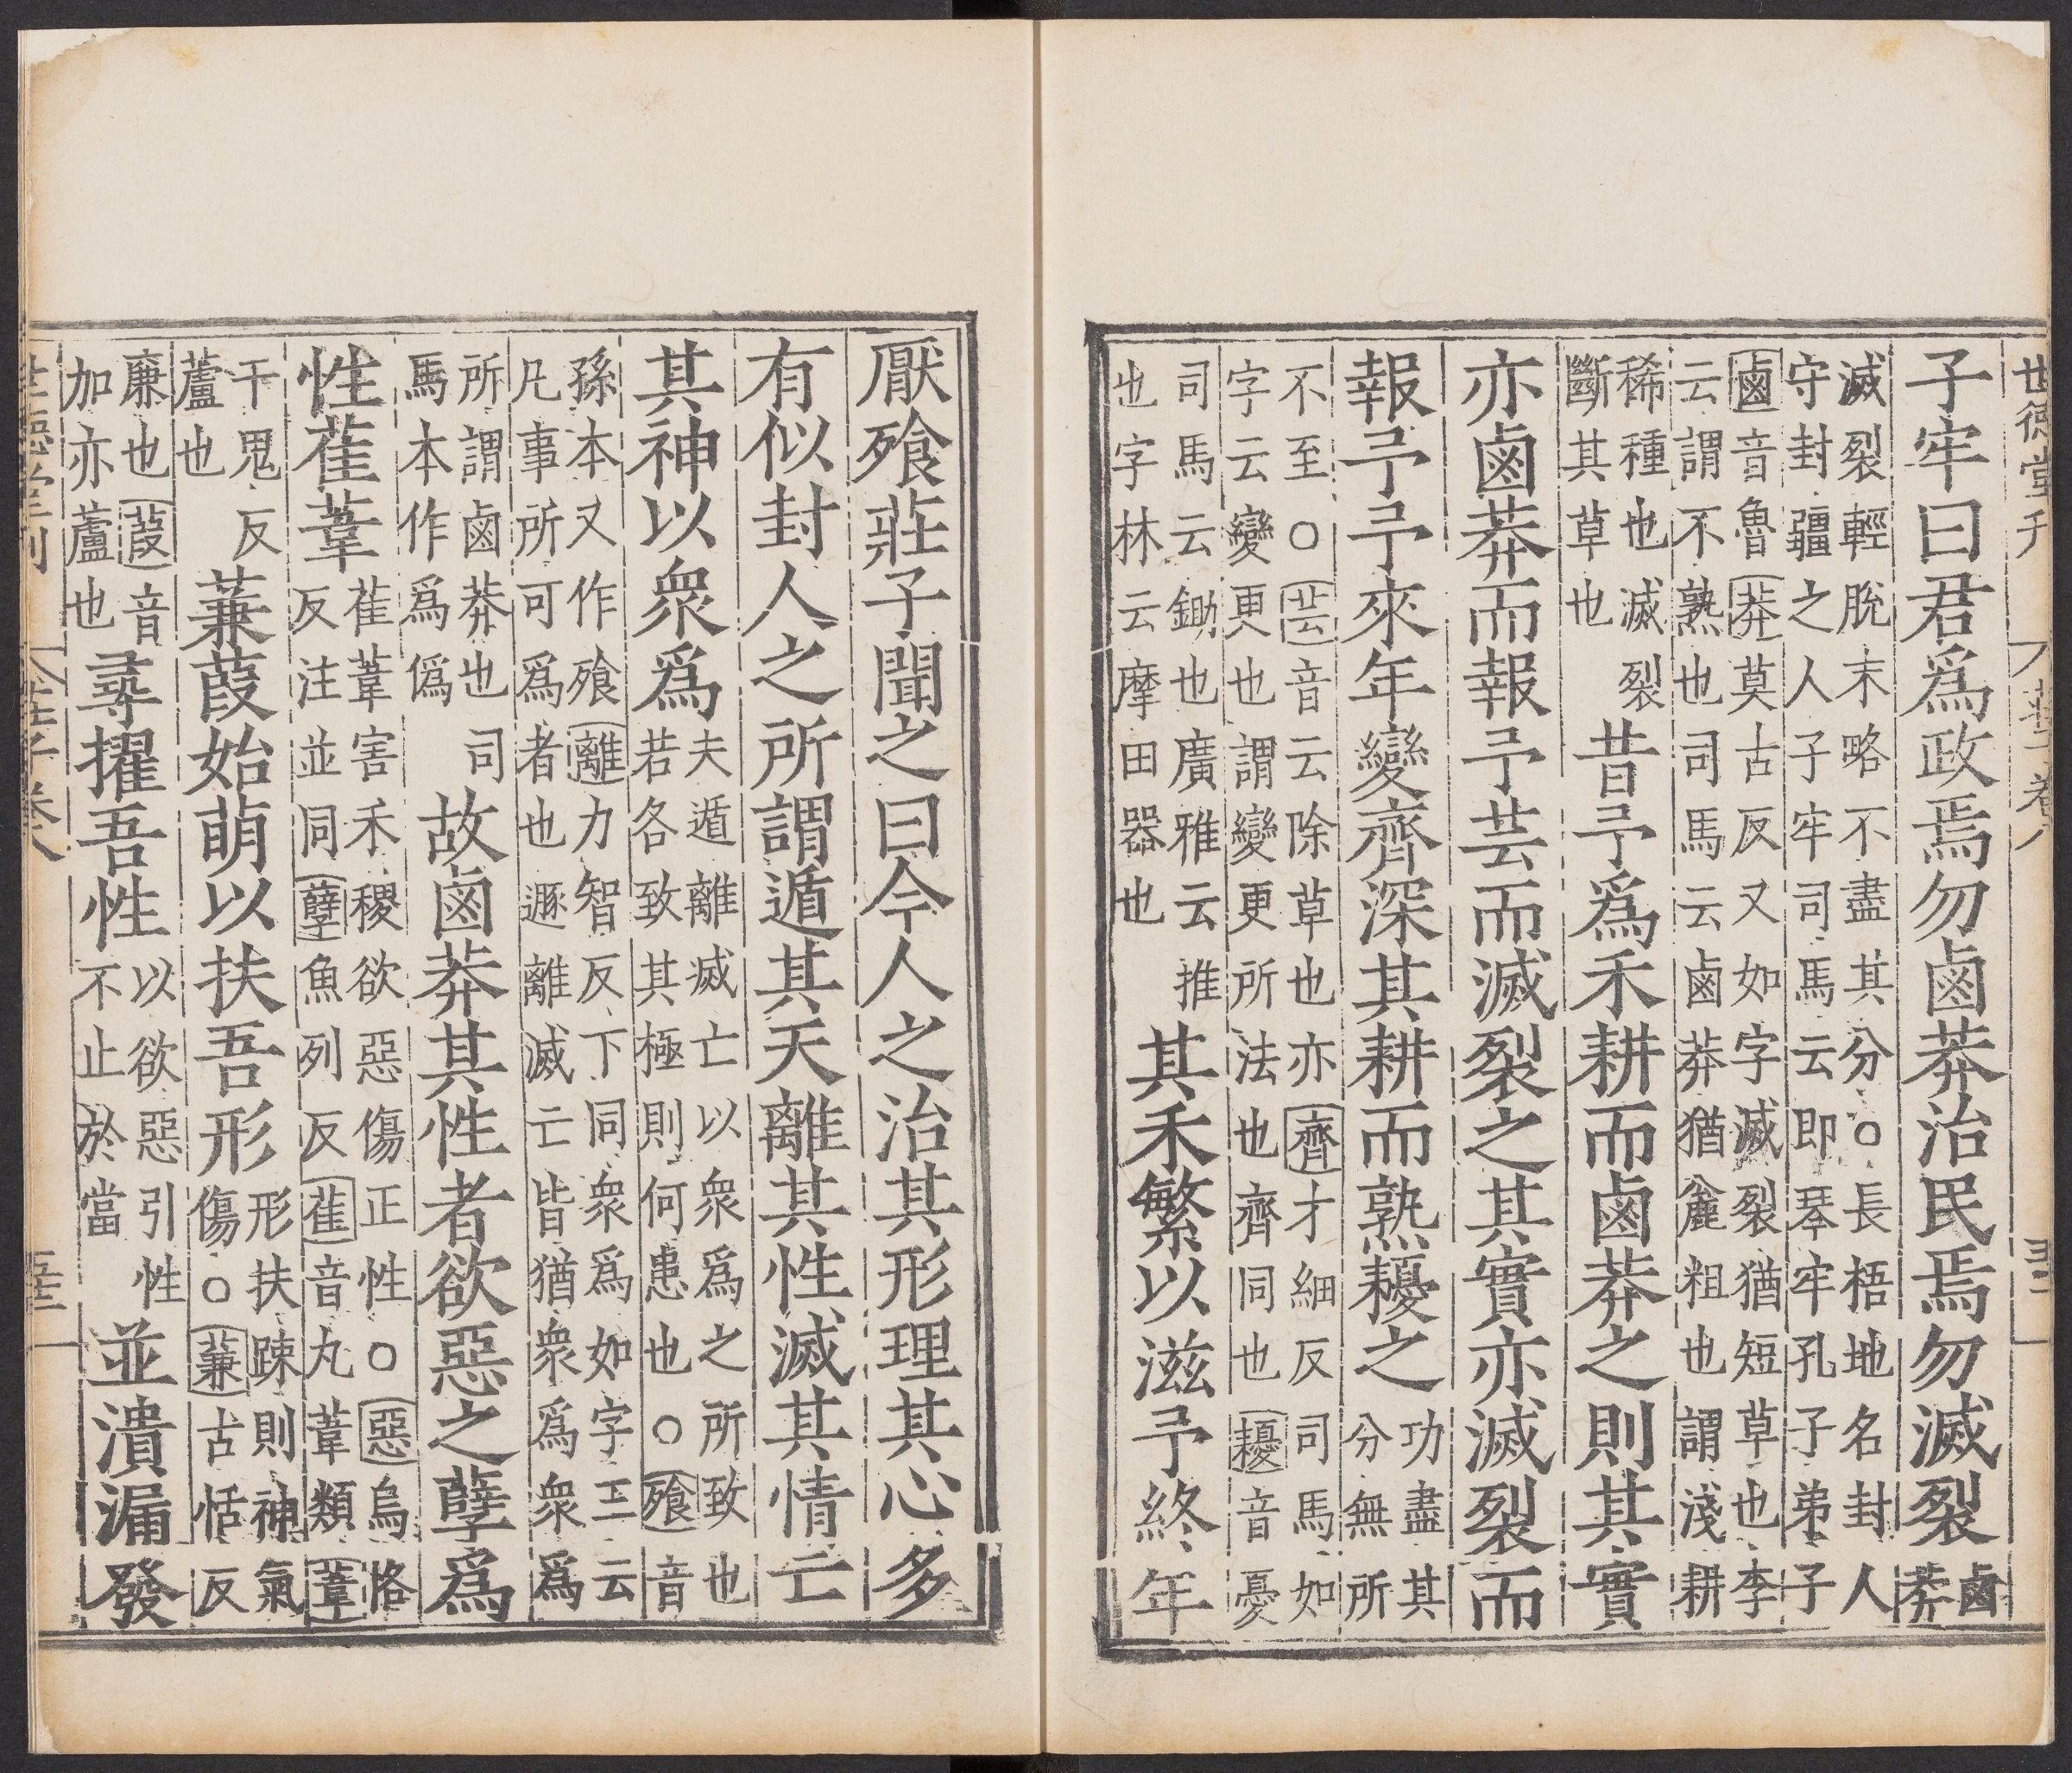 世德堂刊 莊子卷八
子牢曰君爲政焉勿鹵莽治民焉勿滅裂鹵莽
滅裂輕脫末略不盡其分○長梧地名封人
守封疆之人子牢司馬云即琴牢孔子弟子
鹵音魯莽莫古反又如字滅裂猶短草也李
云謂不熟也司馬云鹵莽猶麄粗也謂淺耕
稀種也滅裂
斷其草也
昔予爲禾耕而鹵莽之則其實
亦鹵莽而報予芸而滅裂之其實亦滅裂而
報予予來年變齊深其耕而熟耰之功盡其
分無所
不至○芸音云除草也亦齊才細反司馬如
字云變更也謂變更所法也齊同也耰音憂
司馬云鋤也廣雅云推
也字林云摩田器也
其禾繁以滋予終年
厭飱莊子聞之曰今人之治其形理其心多
有似封人之所謂遁其天離其性滅其情亡
其神以衆爲夫遁離滅亡以衆爲之所致也
若各致其極則何患也○飱音
孫本又作飱離力智反下同衆爲如字王云
凡事所可爲者也遯離滅亡皆猶衆爲衆爲
所謂鹵莽也司
馬本作爲僞
故鹵莽其性者欲惡之孽爲
性萑葦萑葦害禾稷欲惡傷正性○惡烏恪
反注並同孽魚列反萑音丸葦類葦
于鬼反
蘆也
蒹葭始萌以扶吾形形扶踈則神氣
傷○蒹古恬反
廉也葭音
加亦蘆也
尋擢吾性以欲惡引性
不止於當
並潰漏發
世德堂刊 莊子卷八